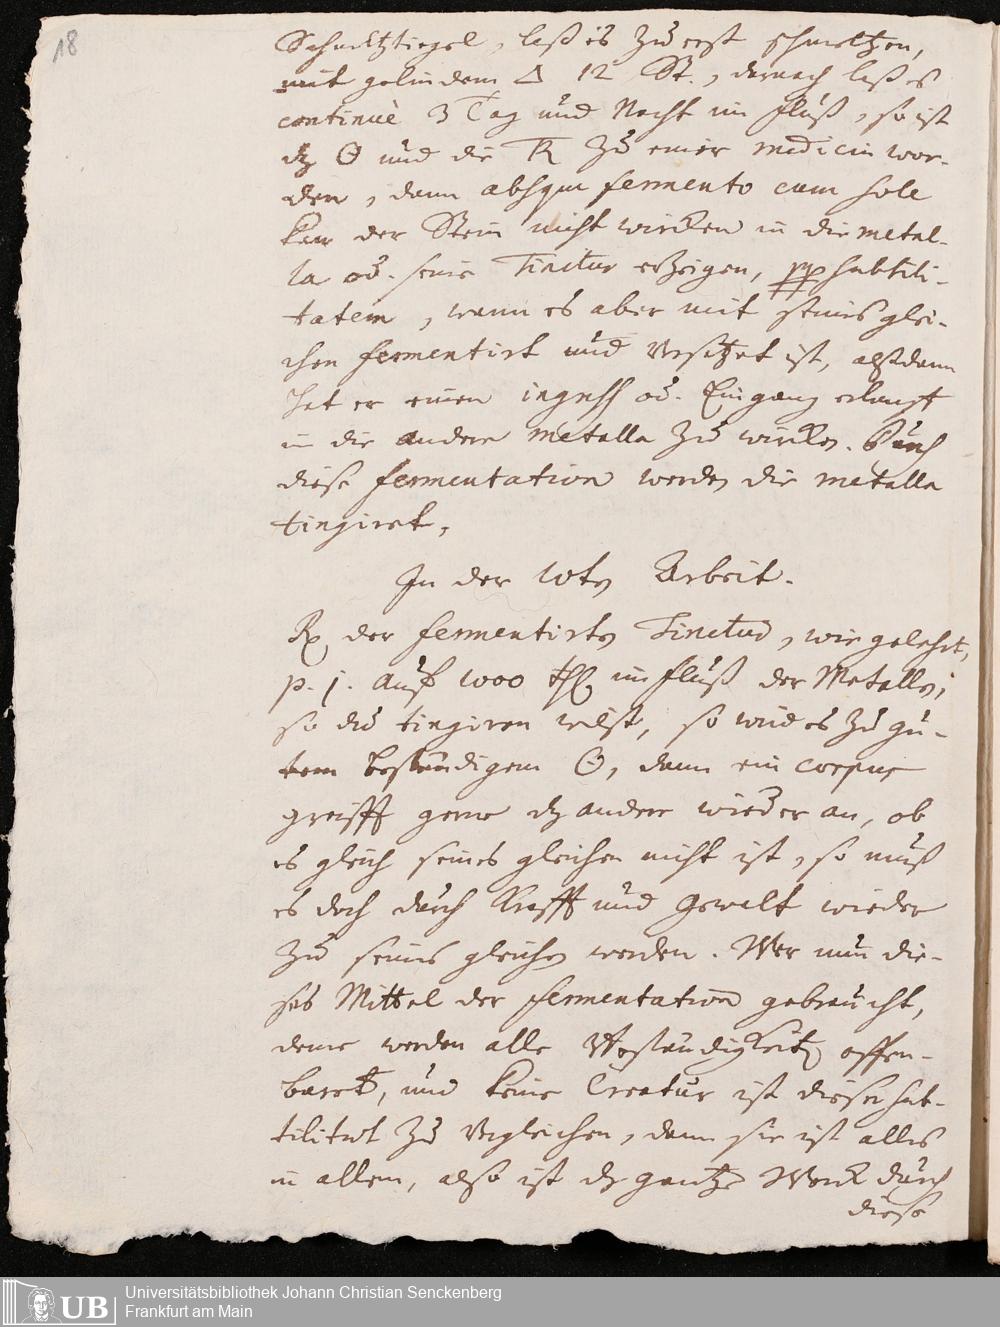 18
Schmeltztiegel, laß es zu erst schmeltzen,
mit gelindem △ 12 St., darnach laß es
continuè 3 Tag und Nacht im fluß, so ist
dz ☉ und die TR zu einer medicin wor-
den, dann absque fermento cum sole
kan der Stein nicht wircken in die metal-
la od. seine Tinctur erzeigen, ppp subtili-
tatem, wann es aber mit seines glei-
chen fermentirt und versetzet ist, alßdann
hat er einen ingress od. Eingang erlangt
in die andere metalla zu wircken. Durch
diese fermentation werden die metalla
tingiret,
In der 10ten Arbeit.
℞ der fermentirten Tinctur, wie gelehrt,
p. j. auf 1000 thl im fluß der Metallen,
so du tingiren wilst, so wird es zu gu-
tem beständigem ☉, dann ein corpus
greifft gerne dz andere wieder an, ob
es gleich seines gleichen nicht ist, so muß
es doch durch Krafft und Gewalt wieder
zu seines gleichen werden. Wer nun die-
ses Mittel der fermentation gebraucht,
deme werden alle offen-
baret, und keine Creatur ist dieser sub-
tilitet zu vergleichen, dann sie ist alles
in allem, also ist dz gantze Werck durch
diese
UB
Universitätsbibliothek Johann Christian Senckenberg
Frankfurt am Main